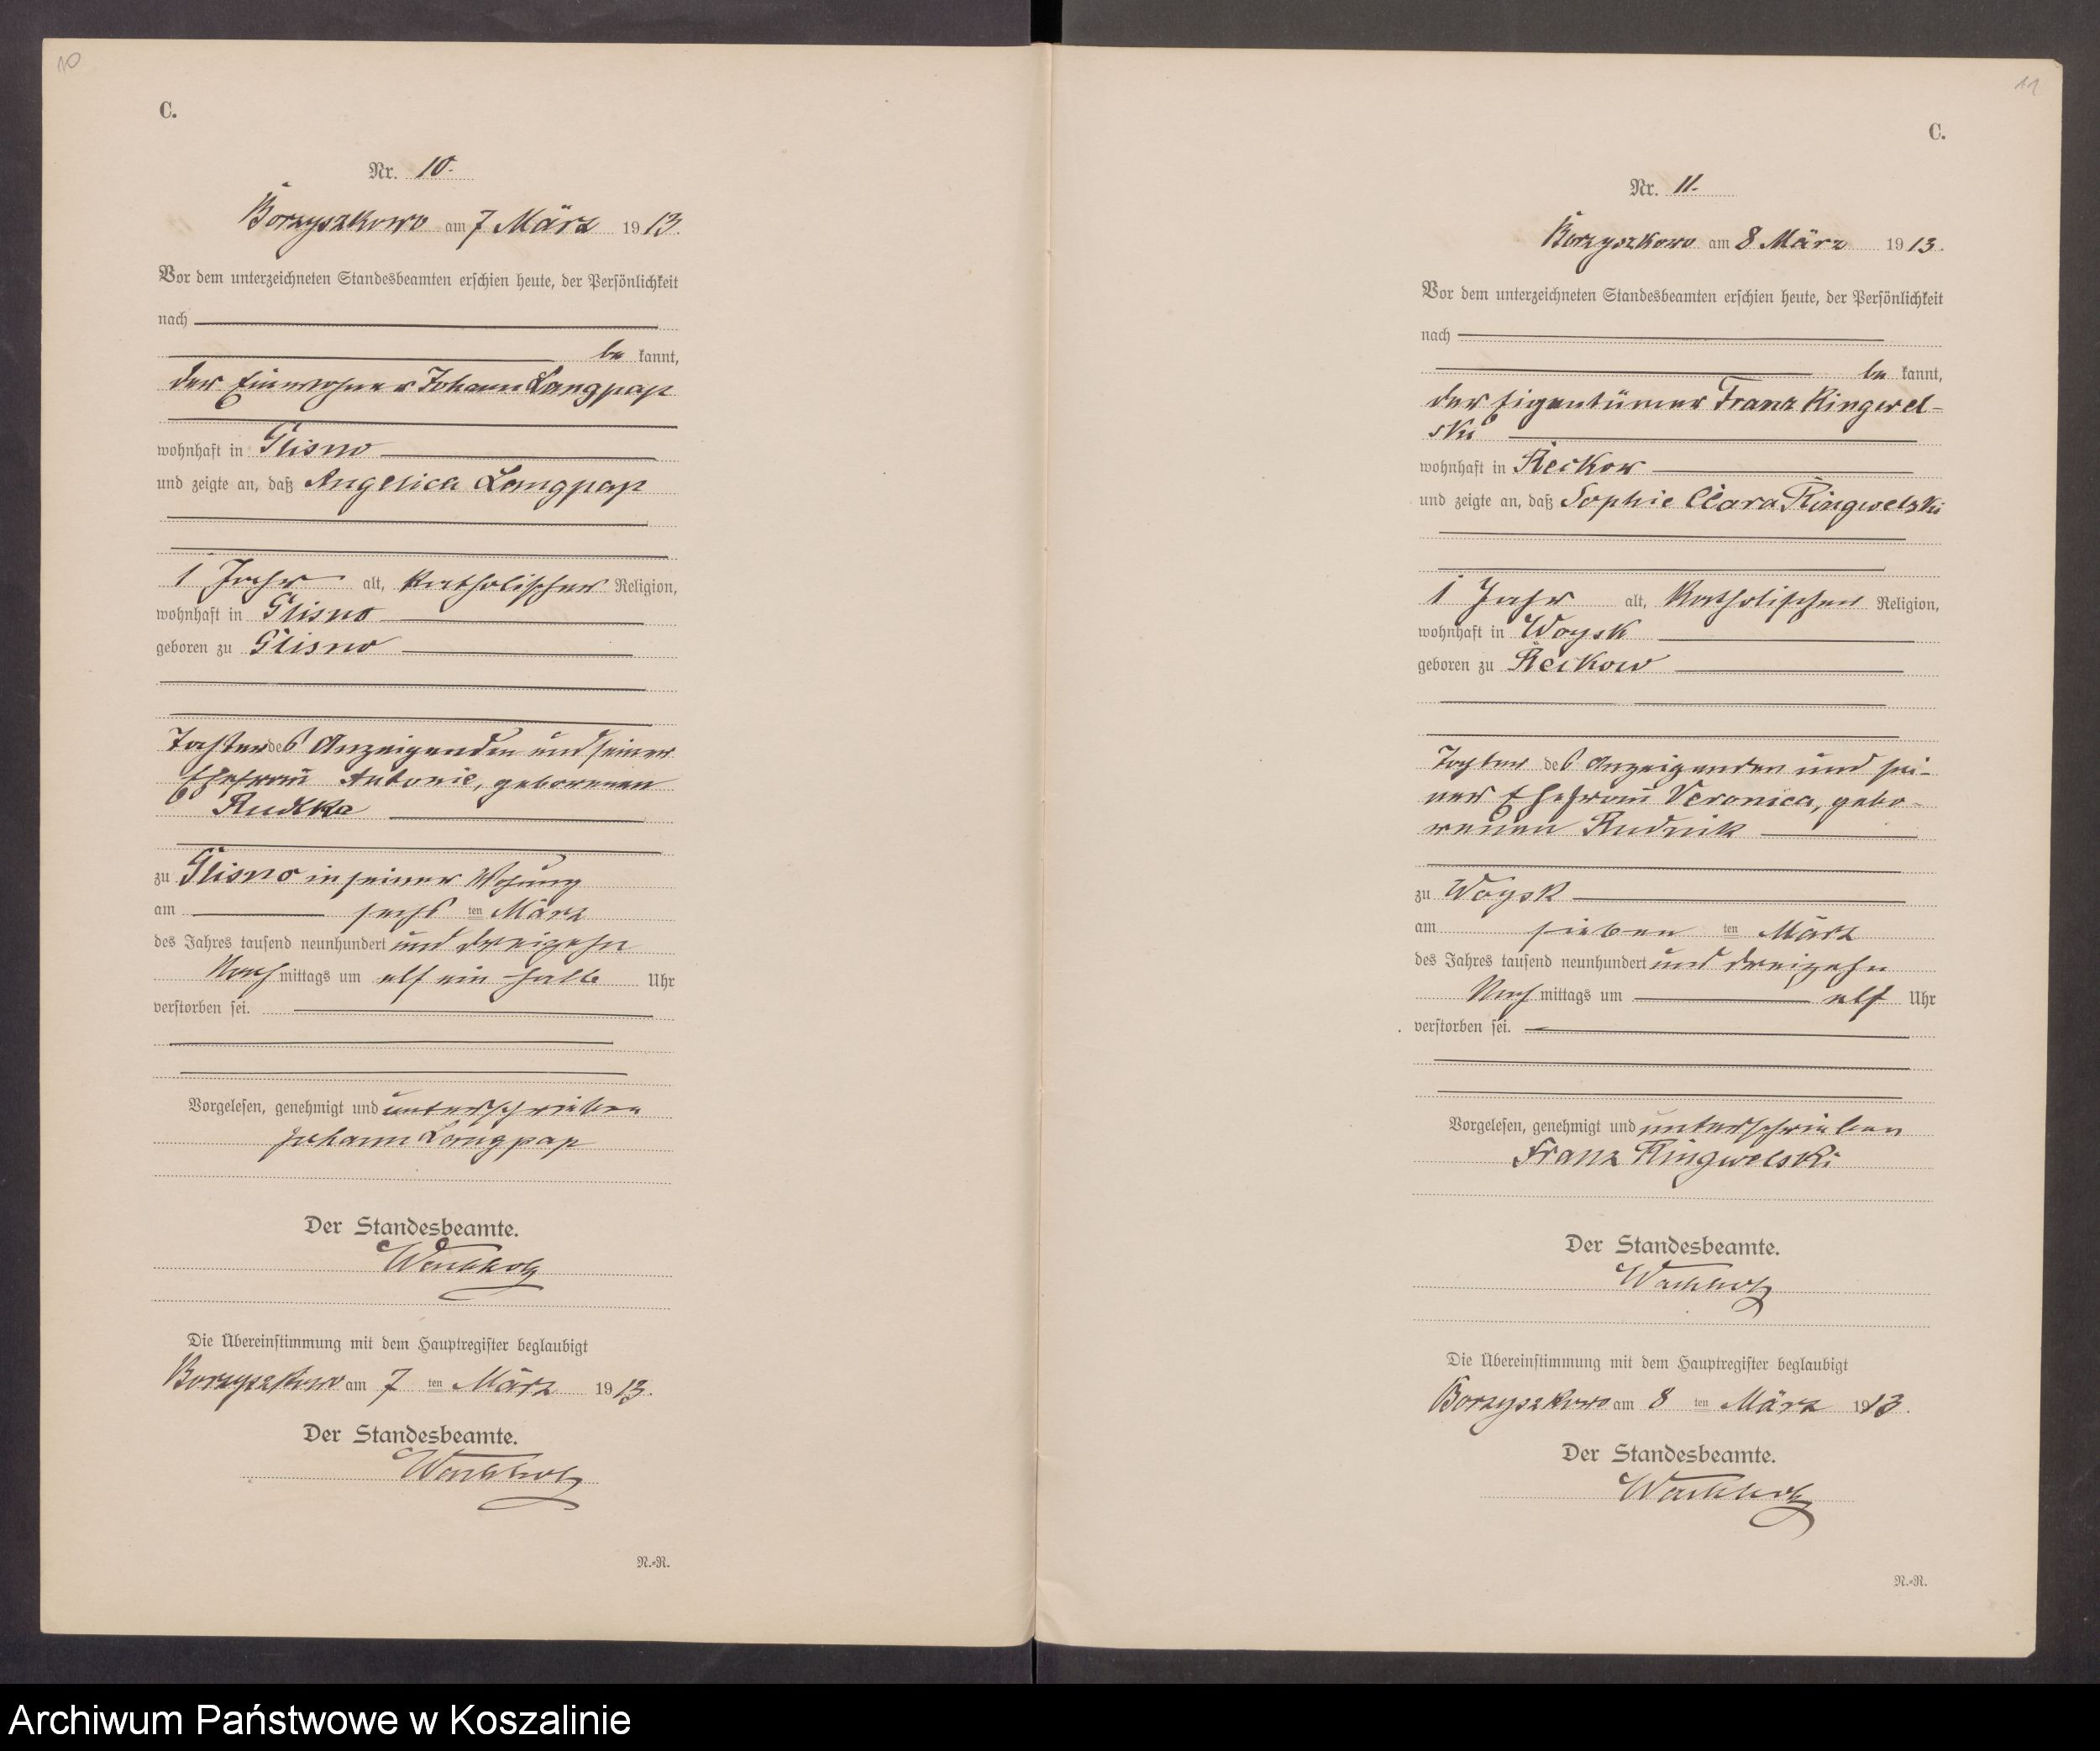 10
C.
Nr. 10.
Borzyszkowo am 7 März 1913.
Vor dem unterzeichneten Standesbeamten erschien heute, der Persönlichkeit
nach
be kannt,
der Einwohner Johann Langpap
wohnhaft in Glisno
und zeigte an, daß Angelica Langpap
1 Jahr alt, katholischer Religion,
wohnhaft in Glisno
geboren zu Glisno
Tochter des Anzeigenden und seiner
Ehefrau Antonie, geborenen
Rudkka
zu Glisno in seiner Wohnung
am sechsten März
des Jahres tausend neunhundert und dreizehn
Nachmittags um elf ein halb Uhr
verstorben sei.
Vorgelesen, genehmigt und unterschrieben
Johann Langpap
Der Standesbeamte.
Wachholz
Die Übereinstimmung mit dem Hauptregister beglaubigt
Borzyszkowo am 7 ten März 1913.
Der Standesbeamte.
Wachholz
N.-R.
11
C.
Nr. 11.
Borzyszkowo am 8 März 1913.
Vor dem unterzeichneten Standesbeamten erschien heute, der Persönlichkeit
nach
be kannt,
der Eigentümer Franz Ringwel-
ski
wohnhaft in Reckow
und zeigte an, daß Sophie Clara Ringwelski
1 Jahr alt, katholischen Religion,
wohnhaft in Woysk
geboren zu Reckow
Tochter des Anzeigenden und sei-
ner Ehefrau Veronica, gebo-
renen Rudnik
zu Woysk
am sieben ten März
des Jahres tausend neunhundert und dreizehn
Nachmittags um elf Uhr
verstorben sei.
Vorgelesen, genehmigt und unterschrieben
Franz Ringwelski
Der Standesbeamte.
Wachholz
Die Übereinstimmung mit dem Hauptregister beglaubigt
Borzyszkowo am 8 ten März 1913.
Der Standesbeamte.
Wachholz
N.-R.
Archiwum Państwowe w Koszalinie